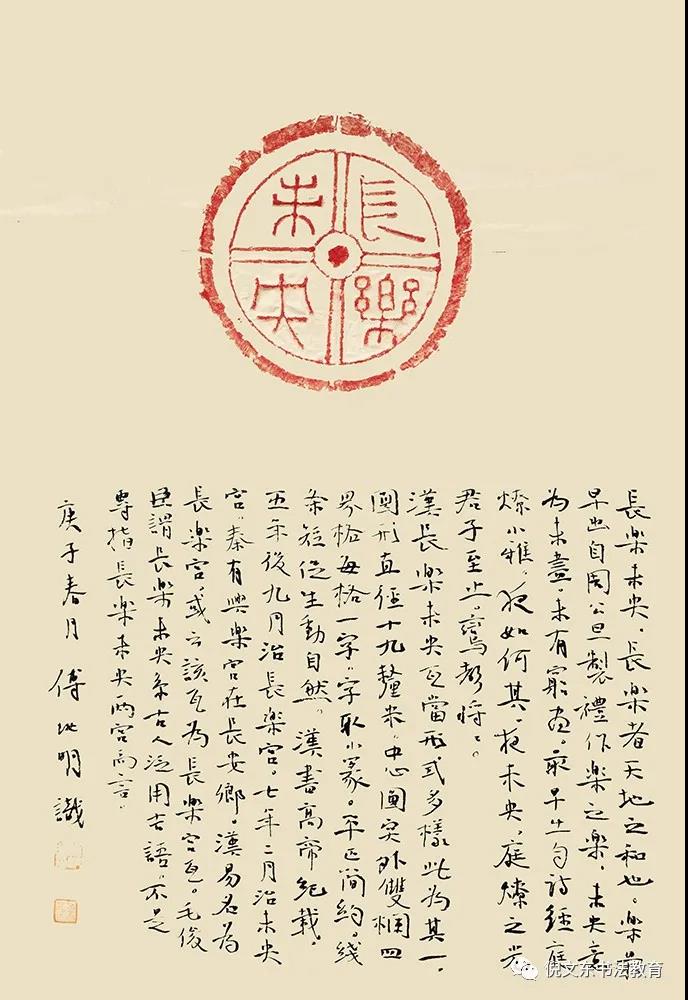 長樂
未央
長樂未央。長樂者天地之和也。樂最
早出自周公旦製禮作樂之樂。未央意
為未盡。未有窮盡。最早出自詩經庭
燎小雅。夜如何其。夜未央。庭燎之光
君子至止。鸞聲將〻。
漢長樂未央瓦當形式多樣此為其一。
圓形直徑十九釐米。中心圓突外雙欄四
界格每格一字。字取小篆。平正簡約。綫
条短促生動自然。漢書高帝紀載。
五年後九月治長樂宮。七年二月治未央
宮。秦有興樂宮在長安鄉。漢易名為
長樂宮。或云該瓦為長樂宮瓦。毛俊
臣謂長樂未央系古人泛用吉語。不是
專指長樂未央兩宮而言。
庚子春月 傅明識
倪文东书法教育